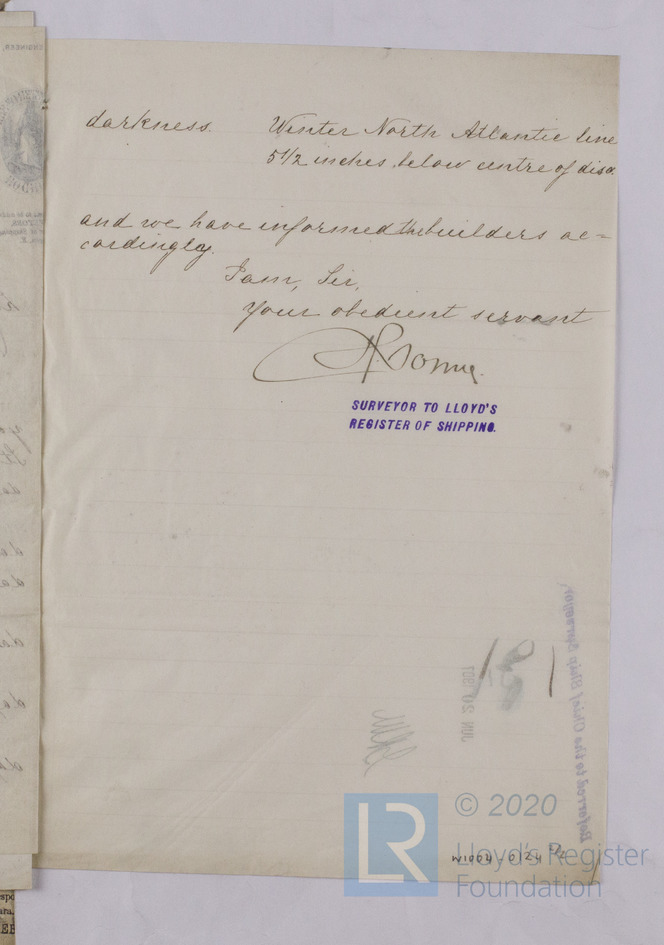 darkness. Winter North Atlantic line
5 1/2 inches below centre of disc
and we have informed the builders ac=
cordingly.
I am, Sir,
Your obedient servant
SURVEYOR TO LLOYD'S
REGISTER OF SHIPPING.
JUN 20 1897
Referred to the Chief Ship Surveyor,
LR
© 2020
Lloyd's Register
Foundation